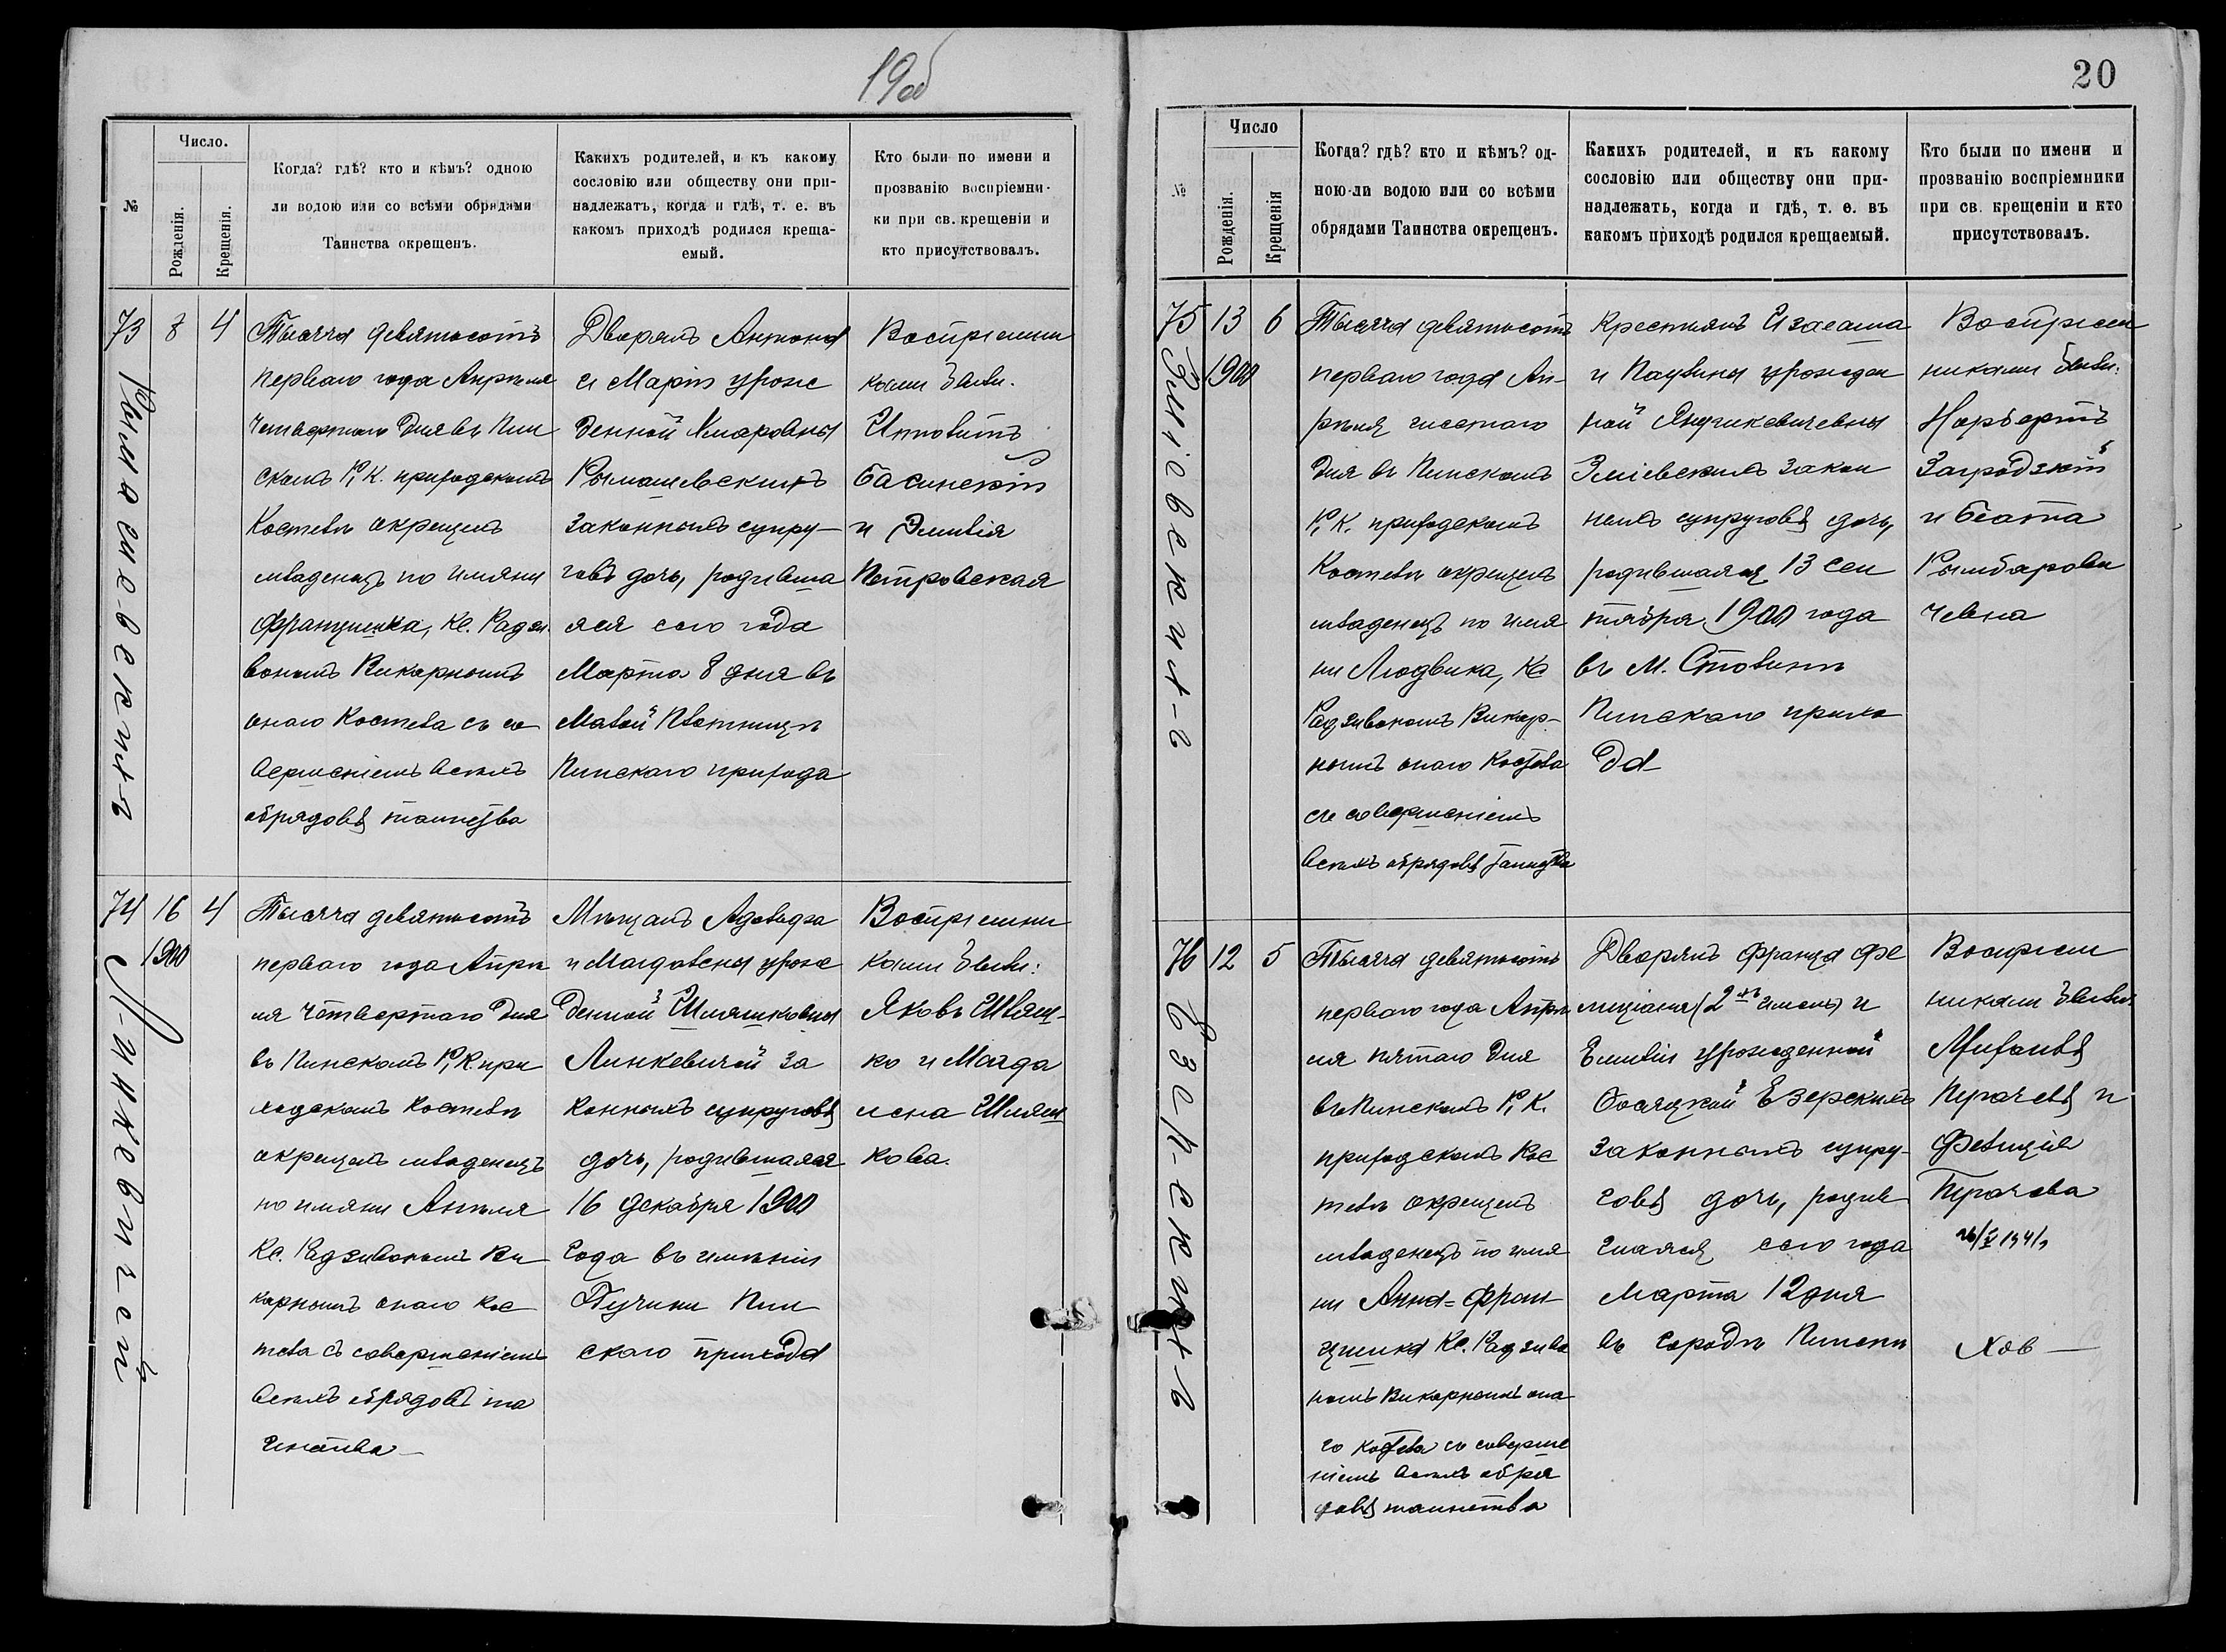 19об
Число.
№
Рожденія.
Крещенія.
Когда? гдѣ? кто и кѣмъ? одною
ли водою или со всѣми обрядами
Таинства окрещенъ.
Какихъ родителей, и къ какому
сословію или обществу они при-
надлежатъ, когда и гдѣ, т. е. въ
какомъ приходѣ родился креща-
емый.
Кто были по имени и
прозванію воспріемни-
ки при св. крещеніи и
кто присутствовалъ.
73
8
4
Рымашевскихъ
Тысяча девятьсотъ
перваго года Апрѣля
Четвертаго дня въ Пин
скомъ Р. К. приходскомъ
Костелѣ окрещенъ
младенецъ по имяни
Францишка, Кс. Радзи
вономъ Викарнымъ
онаго Костела съ со
вершеніемъ всѣхъ
обрядовъ таинства
Дворянъ Антона
и Маріи урож
денной Комаровны
Рымашевскихъ
законныхъ супру-
говъ дочь, родивша
яся сего года
Марта 8 дня въ
Малой Плотницѣ
Пинскаго прихода
Воспріемни
ками были:
Ипполитъ
Басинскій
и Эмилія
Петровская
74
16
1900
4
Линкевичей
Тысяча девятьсотъ
перваго года Апрѣ
ля четвертаго дня
въ Пинскомъ Р. К. при
ходскомъ Костелѣ
окрещенъ младенецъ
по имяни Анеля
Кс. Радзивономъ Ви
карнымъ онаго Кос
тела съ совершеніемъ
всѣхъ обрядовъ та
инства
Мѣщанъ Адольфа
и Магдалены урож
денной Шляшковны
Линкевичей за
конныхъ супруговъ
дочь, родившаяся
16 декабря 1900
года въ имѣніи
Дучини Пин
скаго прихода
Воспріемни
ками были:
Яковъ Шляш-
ко и Магда
лена Шляш
кова.
20
Число
№
Рожденія.
Крещенія
Когда? гдѣ? кто и кѣмъ? од-
ною-ли водою или со всѣми
обрядами Таинства окрещенъ.
Какихъ родителей, и къ какому
сословію или обществу они при-
надлежать, когда и гдѣ, т. е. въ
какомъ приходѣ родился крещаемый.
Кто были по имени и
прозванію воспріемники
при св. крещеніи и кто
присутствовалъ.
75
13
1900
6
Зміевскихъ
Тысяча девятьсотъ
перваго года Ап-
рѣля шестаго
дня въ Пинскомъ
Р. К. приходскомъ
Костелѣ окрещенъ
младенецъ по имя
ни Людвика, Кс
Радзивономъ Викар-
нымъ онаго Костела
съ совершеніемъ
всѣхъ обрядовъ таинства
Крестьянъ
и Паулины урожден
ной Янушкевичевны
Зміевскихъ закон
ныхъ супруговъ дочь,
родившаяся 13 сен
тября 1900 года
въ М. Столинѣ
Пинскаго прихо
да
Воспріем
никами были:
Норбертъ
Загродзкій
и Беата
Рымбарови
чевна
76
12
5
Езерскихъ
Тысяча девятьсотъ
перваго года Апрѣ
ля пятаго дня
въ Пинскомъ Р. К.
приходскомъ Кос
телѣ окрещенъ
младенецъ по имя
ни Анна=Фран
цишка Кс. Радзиво
номъ Викарнымъ она
го Костела со соверше
ніемъ всѣхъ обря
довъ таинства
Дворянъ Франца Фе
лиціана (2хъ имень) и
Емиліи урожденной
Езерскихъ
законныхъ супру-
говъ дочь, родив
шаяся сего года
Марта 12 дня
въ городѣ Пинскѣ
Воспріем
никами были
Михаилъ
и
Фелиція